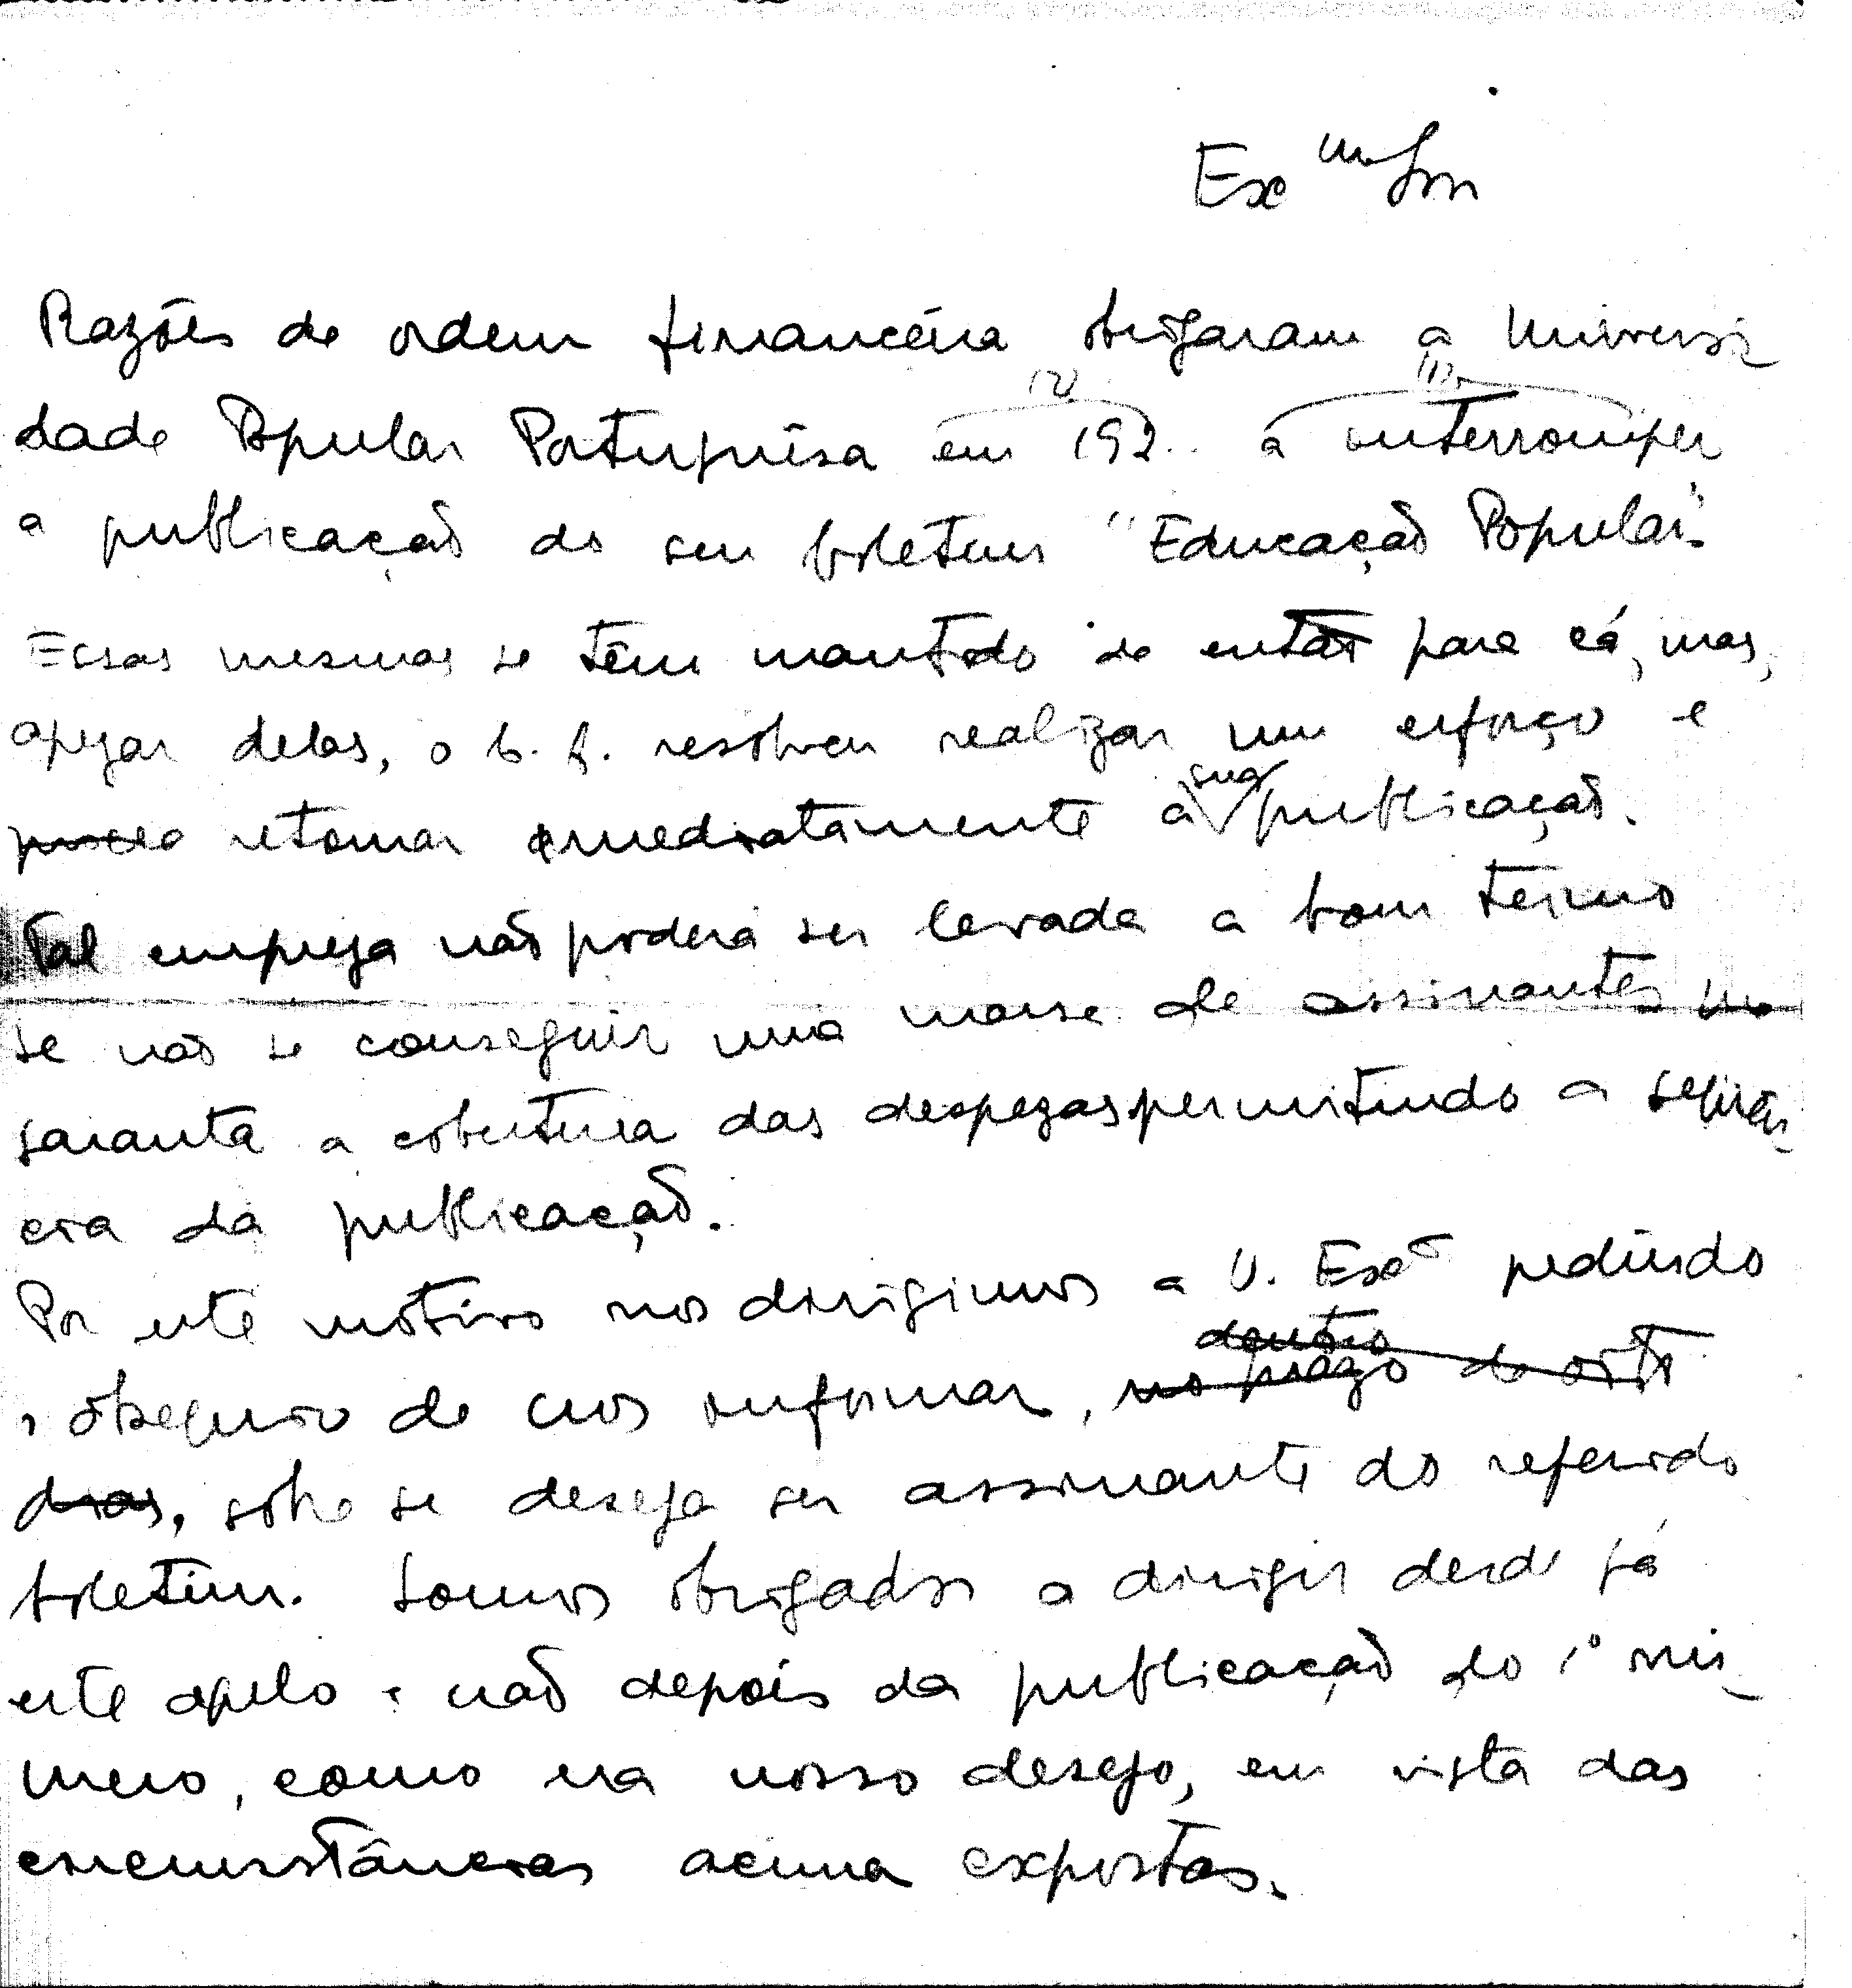 Exmo Snr
Razões de ordem financeira obrigaram a Universi-
(2) (1)
dade Popular Portuguêsa em 192.. a interromper
a publicação do seu boletim "Educação Popular".
Essas mesmas se têm mantido de então para cá, mas,
apezar delas, o C. A. resolveu realizar um esforço e
sua
retomar imediatamente a publicação.
Tal empreza não poderá ser levada a bom têrmo
se não se conseguir uma masse de assinantes que
garanta a cobertura das despezas permitindo a sequên-
cia da publicação.
Por este motivo nos dirigimos a V. Exª pedindo
dentro
o obsequio de nos informar, no prazo de oito
dias, sobre se deseja ser assinante do referido
boletim. Somos obrigados a dirigir desde já
este apelo e não depois da publicação do 1º nú-
mero, como era nosso desejo, em vista das
circunstâncias acima expostas.